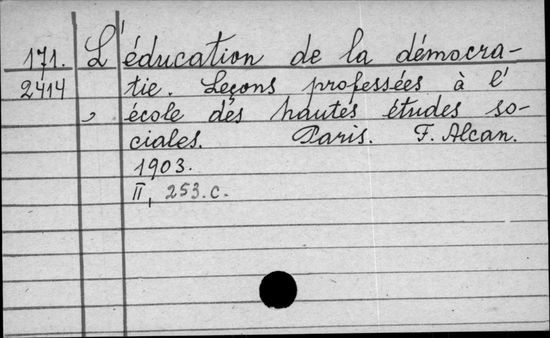 171. L'éducation de la démocra-
2414 tie. Leçons professées à l'
école des hautes études so-
ciales. Paris. F. Alcan.
1903.
II, 253.c.